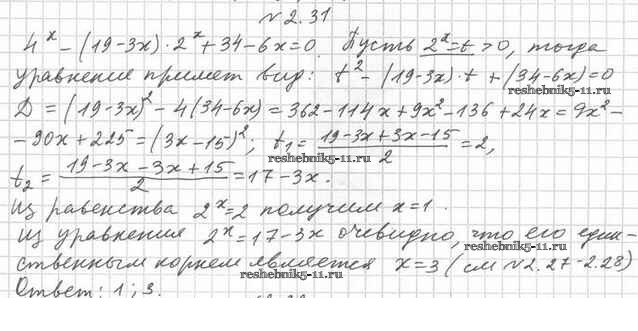 №2.31
4^x − (19−3x)·2^x + 34−6x=0. Пусть 2^x=t >0, тогда
уравнение примет вид: t^2 − (19−3x)·t + (34−6x)=0
D = (19−3x)^2 − 4(34−6x) = 362−114x+9x^2−136+24x = 9x^2−
−90x+225=(3x−15)^2; t_1 = (19−3x+3x−15)/2 = 2,
reshebnik5-11.ru
reshebnik5-11.ru
t_2 = (19−3x−3x+15)/2 = 17−3x.
reshebnik5-11.ru
Из равенства 2^x=2 получим x=1.
Из уравнения 2^x=17−3x очевидно, что его един-
reshebnik5-11.ru
ственным корнем является x=3 (см №2.27-2.28)
reshebnik5-11.ru
Ответ: 1; 3.